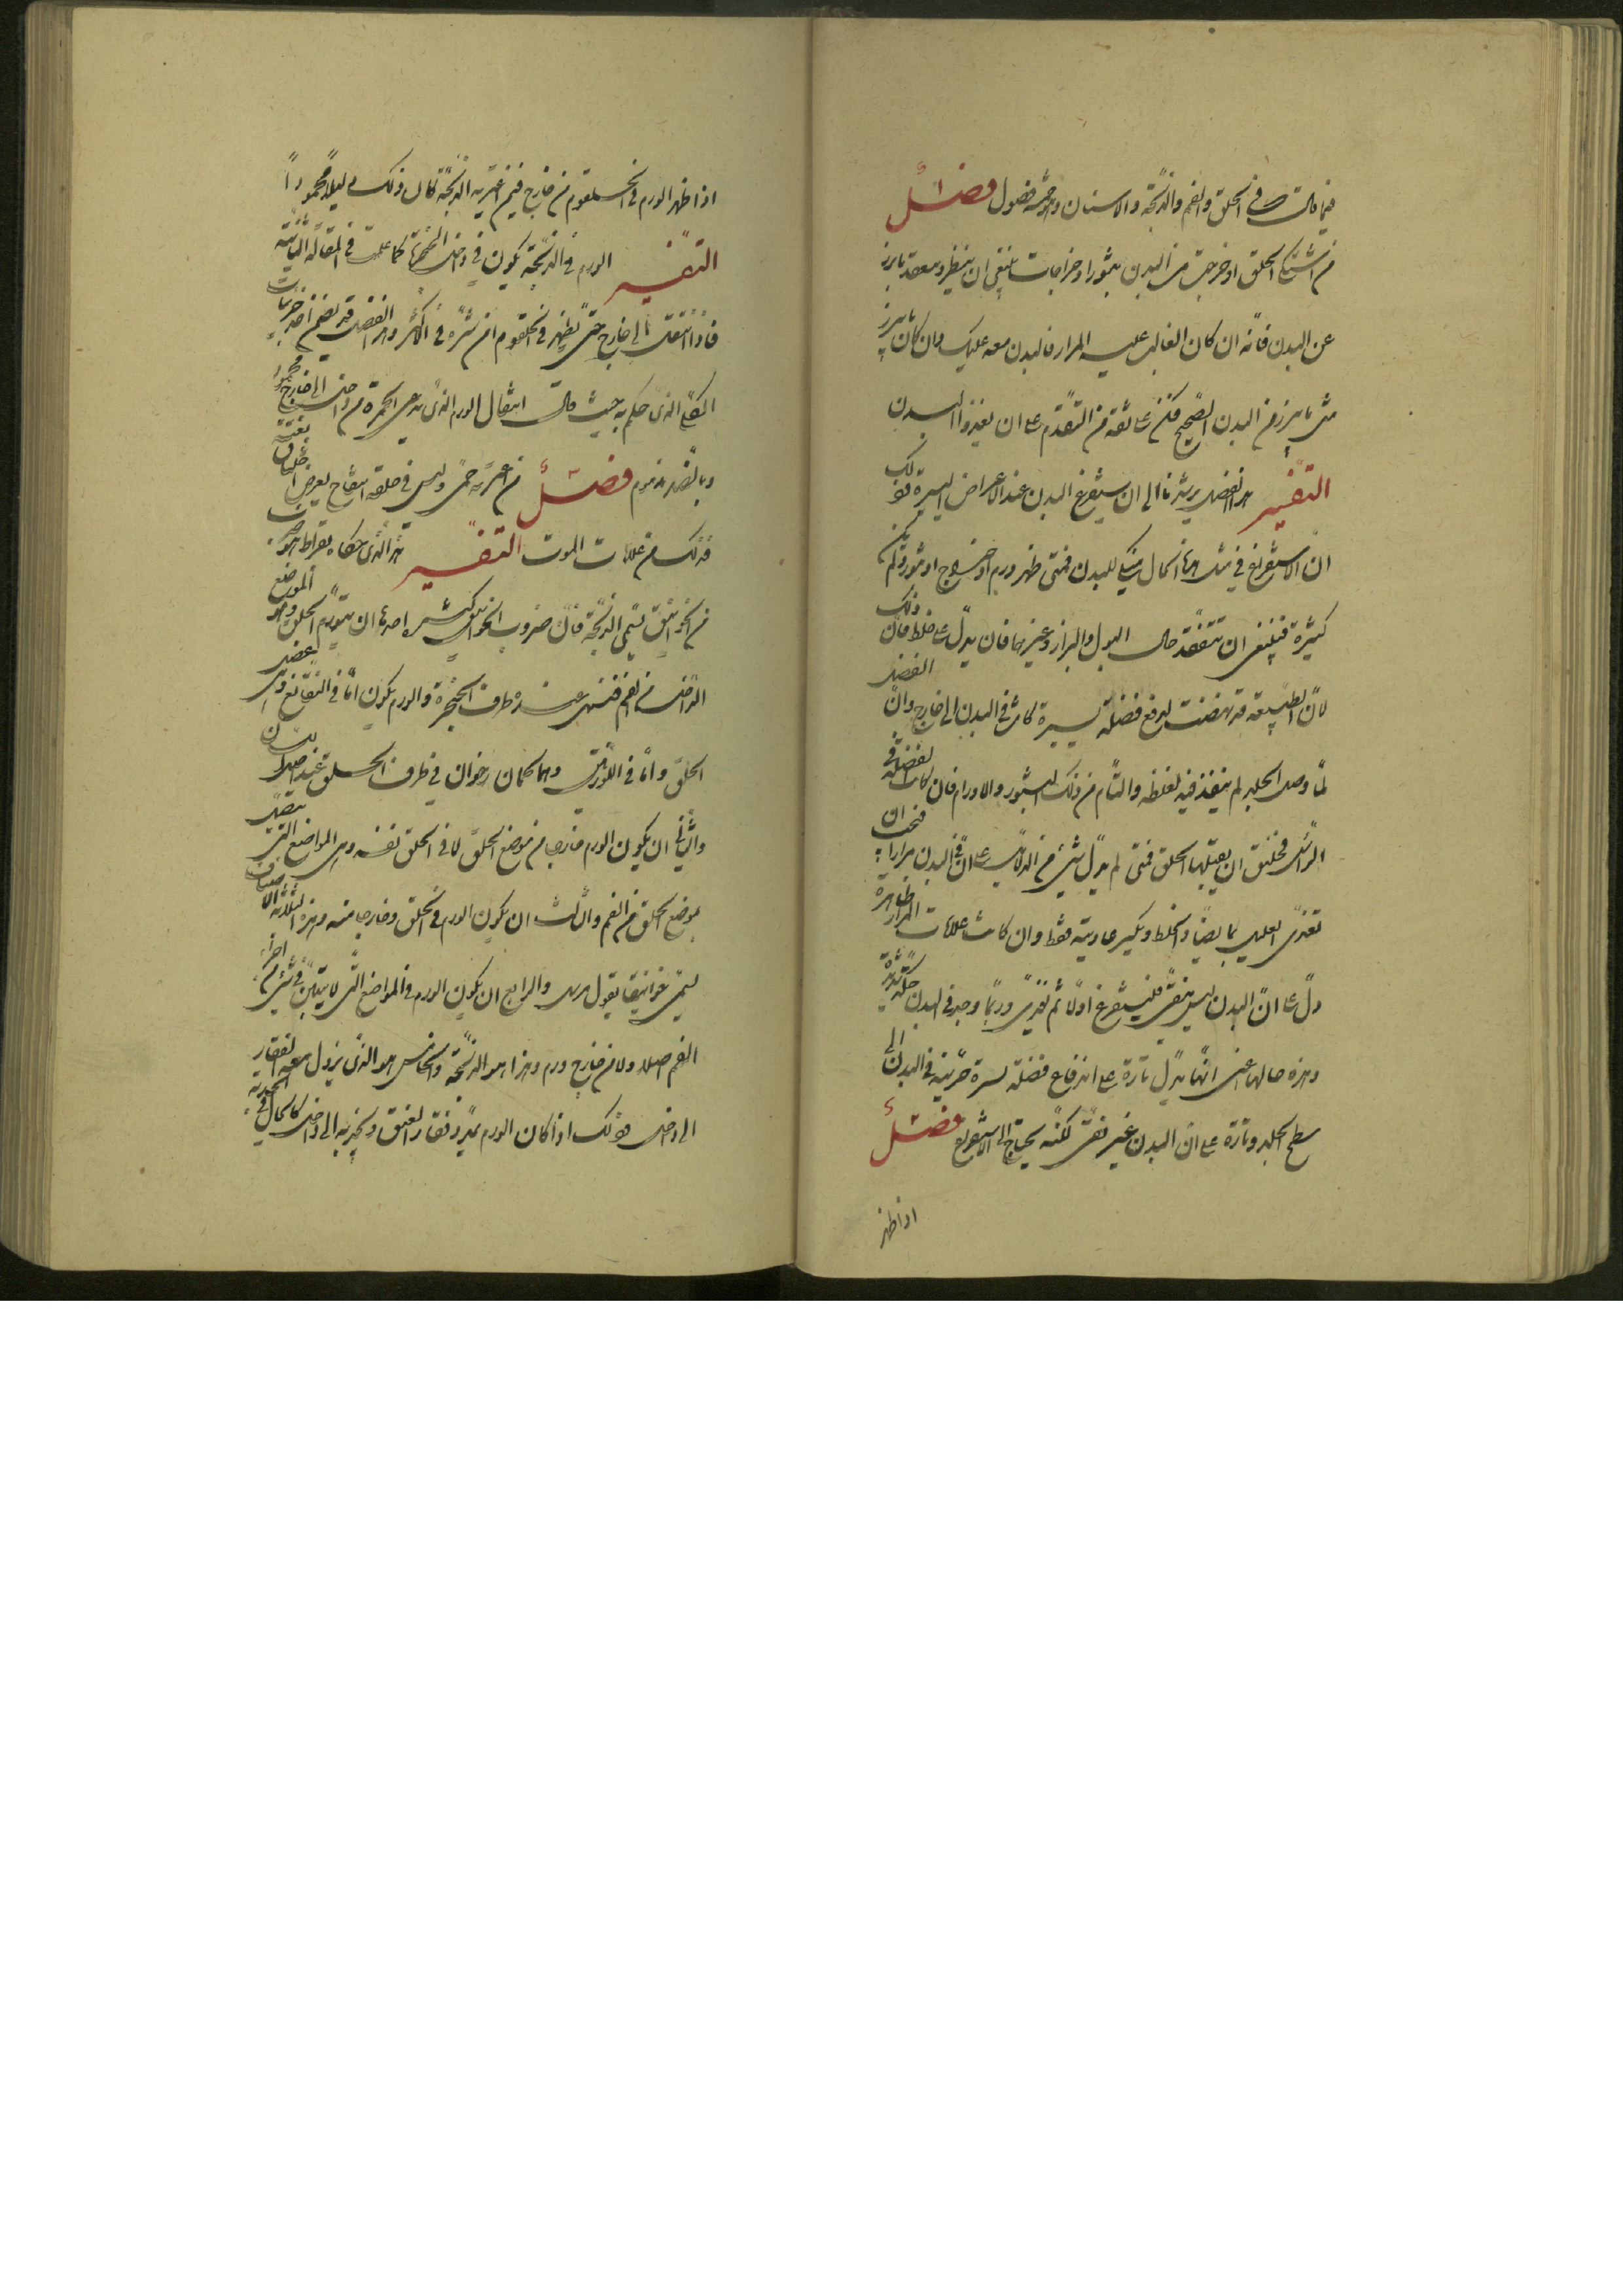 فيما قالت في الحلق والفم والذبحة والاسنان وهو خمسة فصول فصل
من اشتكى الحلق او خرجت من البدن بثورا وخراجات فينبغي ان ينظر ويتفقد ما يبرز
عن البدن فانه ان كان الغالب عليه المرار فالبدن معه عليل وان كان ما يبرز
مثل ما يبرز من البدن الصحيح فكن على ثقة من التقدم على ان يغذوا البدن
التفسير هذا الفصل يرشدنا الى ان يستفرغ البدن عند الاعراض اليسيرة وذلك
ان الاستفراغ في مثل هذا الحال للبدن فمتى ظهر ورم او خراج او بثور ولم تكن
كثيرة فينبغي ان تتفقد حال البول والبراز وغيرها فان يدل على خلط فان ذلك
لان الطبيعة قد نهضت لدفع فضلة يسيرة كانت في البدن الى خارج وان الفضل
لما وصل الجلد لم ينفذ فيه لغلظه والتأم من ذلك البثور والاورام فان كانت الفضلة في
الرأس فخليق ان يقبلها الحلق فمتى لم يدل شيء من الدلائل على ان في البدن مرارا فيجب ان
تغذي العليل بما يضاد الخلط ويكسر عاديته فقط وان كانت علامات المرار ظاهرة
دل على ان البدن ليس بنقي فليستفرغ اولا ثم تغذى وربما وجد في البدن حكة بثرة
وهذه حالها اعني انها تدل تارة على اندفاع فضلة يسيرة حريفة في البدن الى
سطح الجلد وتارة على ان البدن غير نقي لكنه يحتاج الى الاستفراغ فصل
اذا ظهر
اذا ظهر الورم في الحلقوم من خارج فيمن اعترته الذبحة كان ذلك دليلا محمودا
التفسير الورم في الذبحة يكون في داخل الحنجرة كما علمت في المقالة الثانية
فاذا انتقل الى خارج حتى يظهر في الحلقوم امن شره في الاكثر وهذا الفصل قد تضمن احد جزئيات
الكلي الذي حكم به حيث قال انتقال الورم الذي يدعى الحمرة من داخل الى خارج محمود
وبالضد مذموم فصل من اعترته حمى وليس في حلقه انتفاخ يعرض اختناق بغتة
فذلك من علامات الموت التفسير هذا الذي حكاه بقراط هو
من الخوانيق تسمى الذبحة فان ضروب الخوانيق كثيرة احدها ان يتورم الحلق وهو الموضع
الداخل من الفم فتنتهي عنده طرف الحنجرة والورم يكون اما في النغانغ وفي عضل
الحلق واما في اللوزتين وهما لحمان رخوان في طرف الحلق عند اصل اللسان
والثاني ان يكون الورم خارجا من موضع الحلق لا في الحلق نفسه وهي المواضع التي تتصل
بموضع الحلق من الفم والثالث ان يكون الورم في الحلق وخارجا منه وهذه الثلاثة الاصناف
تسمى خوانيقا بقول مرسل والرابع ان يكون الورم في المواضع التي لا يتبين في شيء من اجزاء
الفم اصلا ولا من خارج ورم وهذا هو الذبحة والخامس هو الذي يزول معه الفقار
الى داخل وذلك اذا كان الورم يمدد فقار العنق ويجذبه الى داخل كالحال في الحدبة